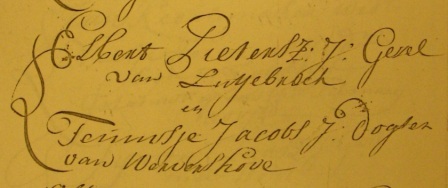 Elbert Pietersz: J: Gesel
van Lutjebroek
en
Teunisje Jacobs J: Dogter
van Wervershove